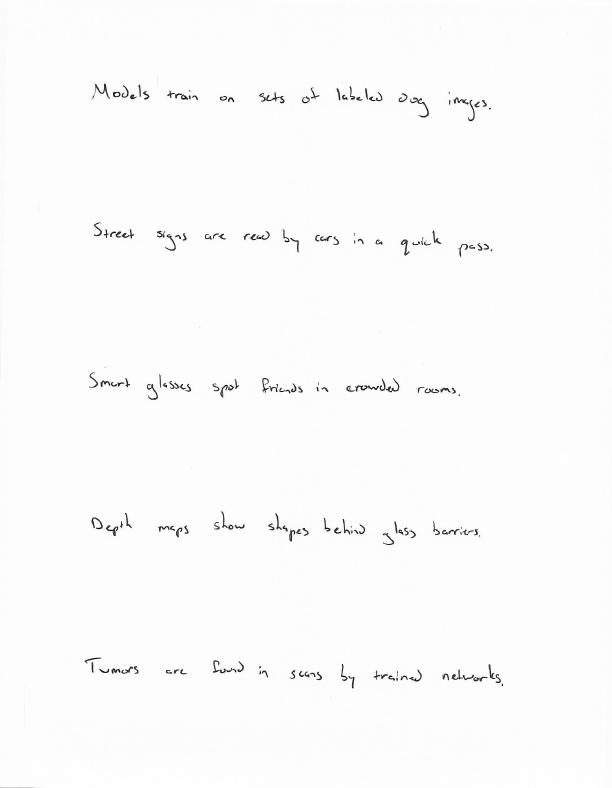 Models train on sets of labeled dog images.
Street signs are read by cars in a quick pass.
Smart glasses spot friends in crowded rooms.
Depth maps show shapes behind glass barriers.
Tumors are found in scans by trained networks.